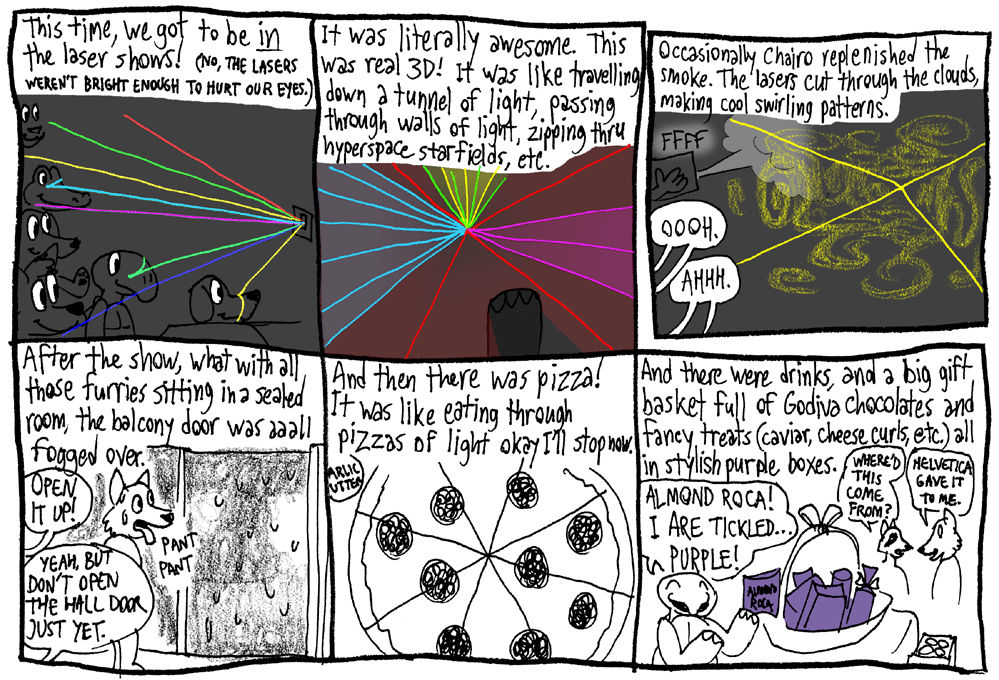 This time, we got to be in
the laser shows! (NO, THE LASERS
WEREN'T BRIGHT ENOUGH TO HURT OUR EYES.)
It was literally awesome. This
was real 3D! It was like travelling
down a tunnel of light, passing
through walls of light, zipping thru
hyperspace starfields, etc.
Occasionally Chairo replenished the
smoke. The lasers cut through the clouds,
making cool swirling patterns.
FFFF
OOOH.
AHHH.
After the show, what with all
those furries sitting in a sealed
room, the balcony door was aaall
fogged over.
OPEN
IT UP!
PANT
PANT
YEAH, BUT
DON'T OPEN
THE HALL DOOR
JUST YET.
And then there was pizza!
It was like eating through
pizzas of light okay I'll stop now.
ARLIC
UTTER
And there were drinks, and a big gift
basket full of Godiva chocolates and
fancy treats (caviar, cheese curls, etc.) all
in stylish purple boxes.
WHERE'D
THIS
COME
FROM?
HELVETICA
GAVE IT
TO ME.
ALMOND ROCA!
I ARE TICKLED...
PURPLE!
ALMOND
ROCA